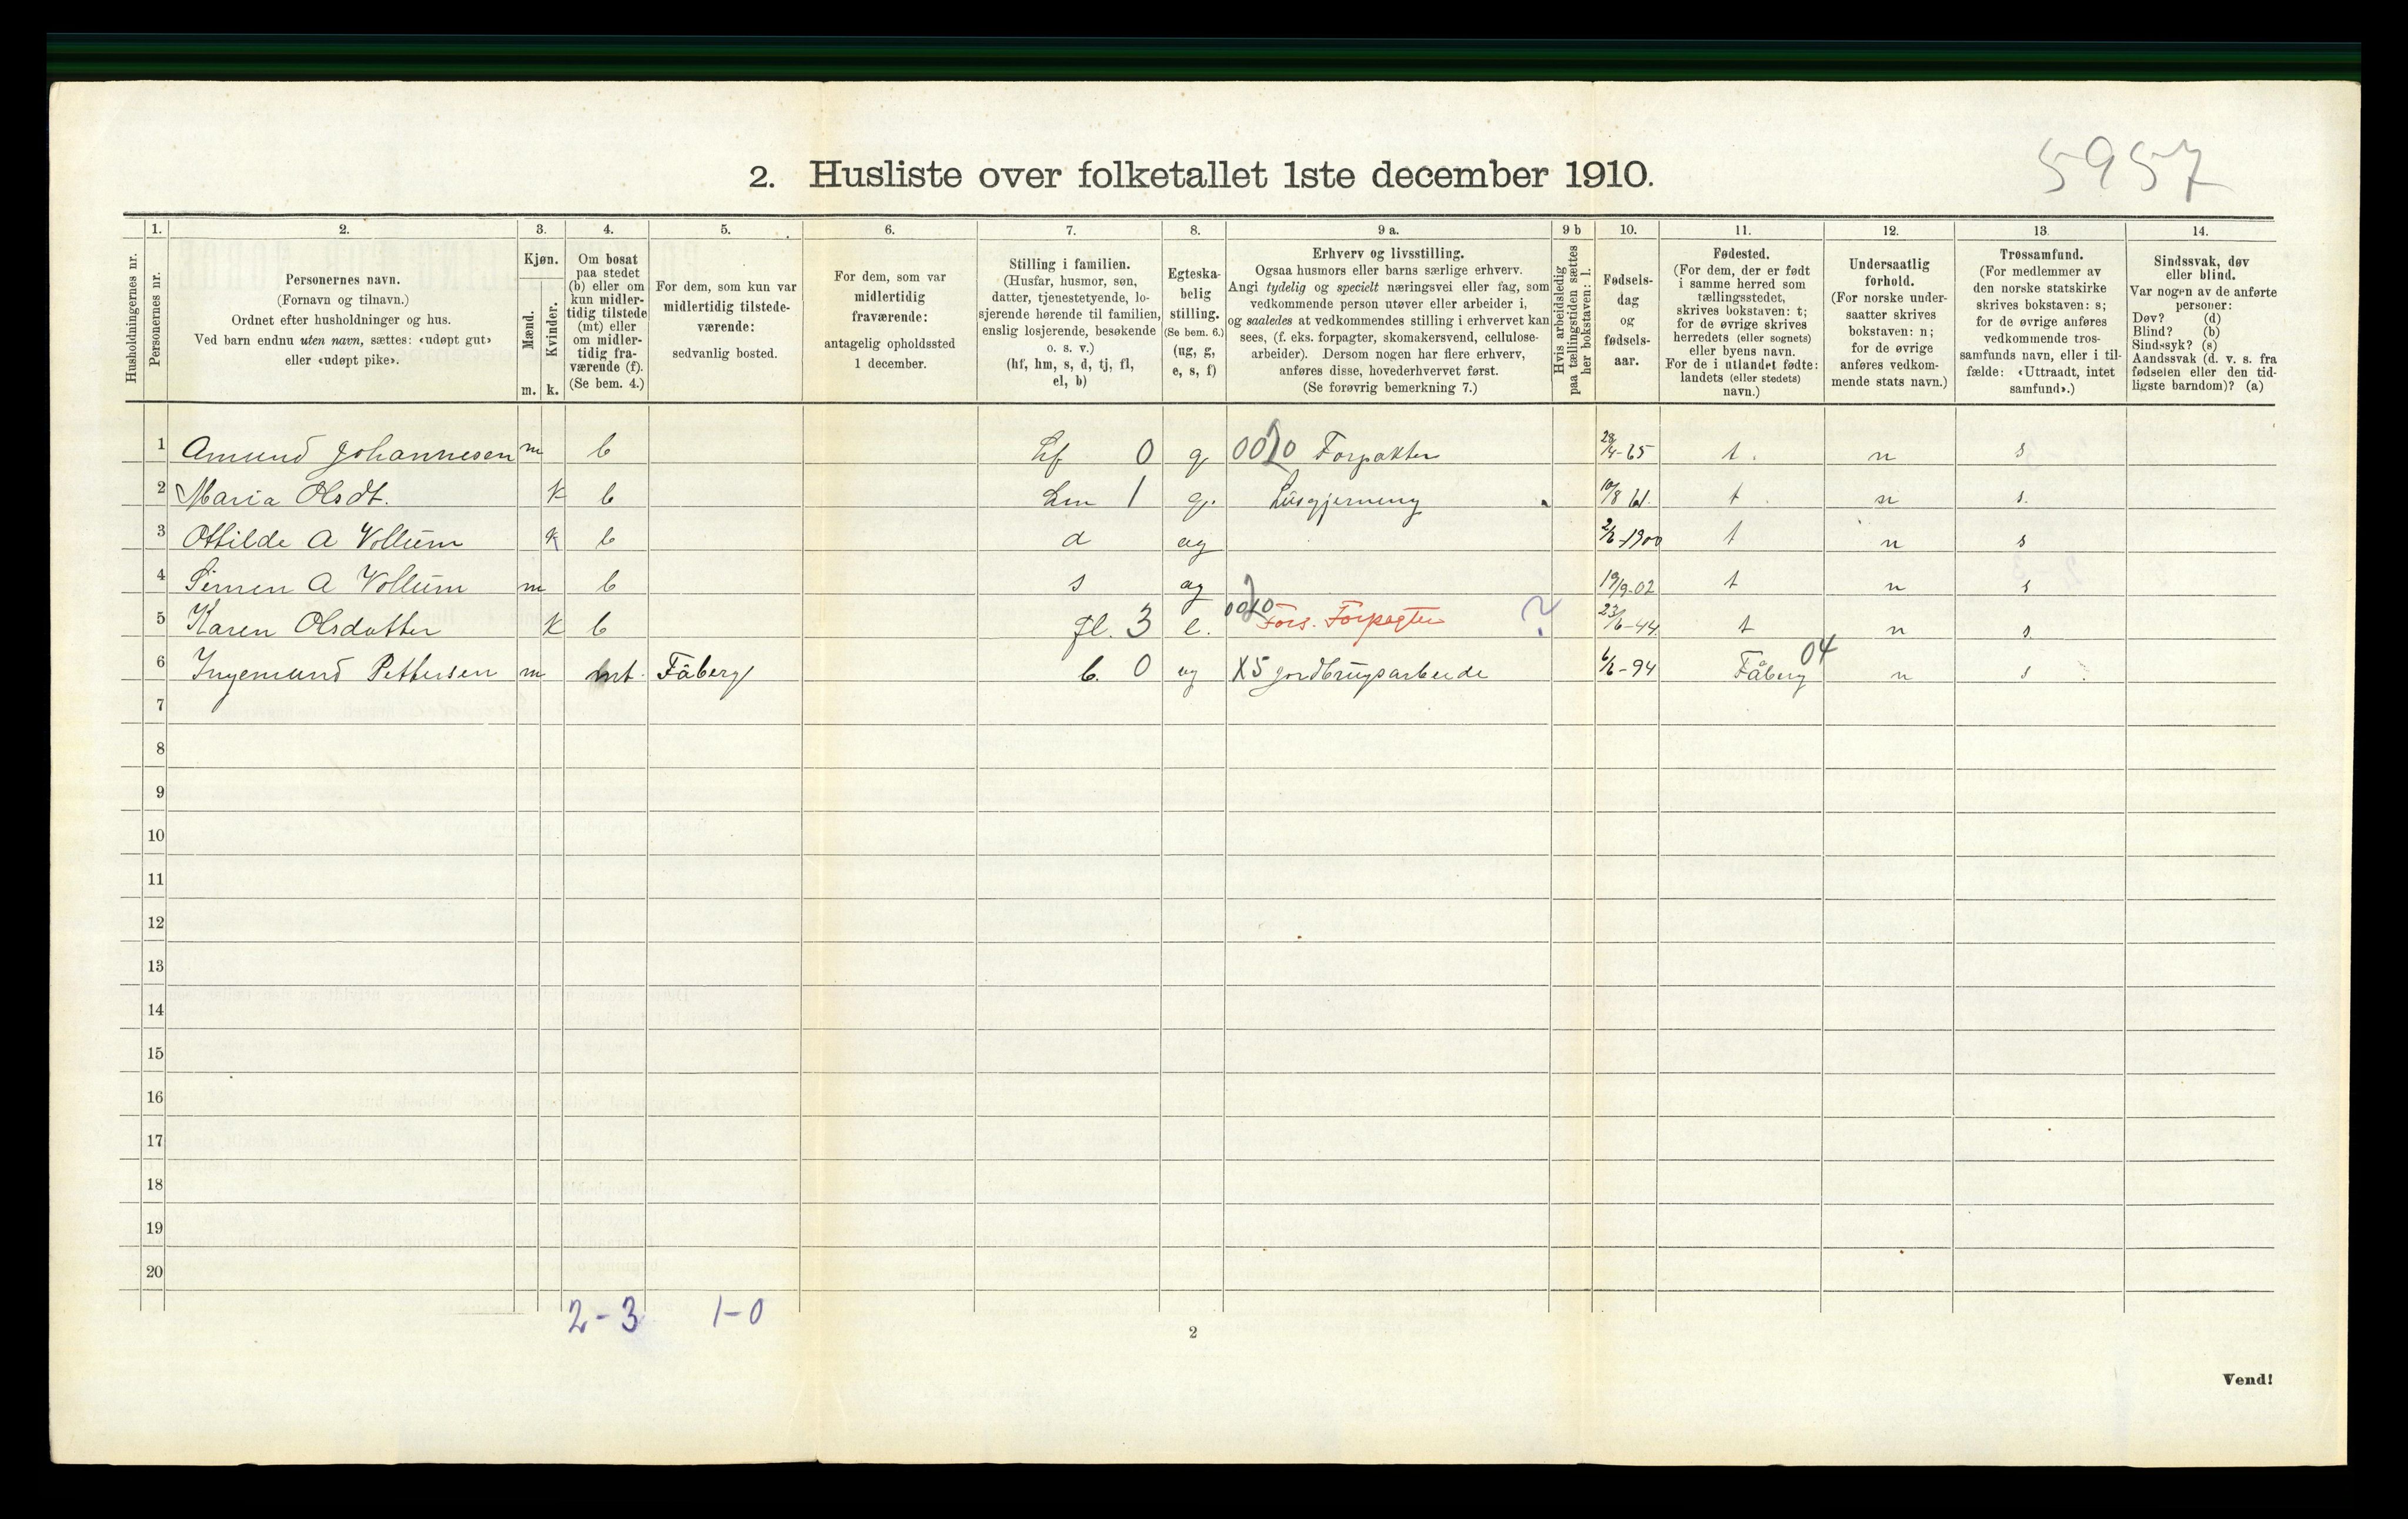 5957
2. Husliste over folketallet 1ste december 1910.
Husholdningernes nr.
1.
Personernes nr.
2.
Personernes navn.
(Fornavn og tilnavn.)
Ordnet efter husholdninger og hus.
Ved barn endnu uten navn, sættes: «udøpt gut»
eller «udøpt pike».
3.
Kjøn.
Mænd.
Kvinder.
m. k.
4.
Om bosat
paa stedet
(b) eller om
kun midler-
tidig tilstede
(mt) eller
om midler-
tidig fra-
værende (f).
(Se bem. 4.)
5.
For dem, som kun var
midlertidig tilstede-
værende:
sedvanlig bosted.
6.
For dem, som var
midlertidig
fraværende:
antagelig opholdssted
1 december.
7.
Stilling i familien.
(Husfar, husmor, søn,
datter, tjenestetyende, lo-
sjerende hørende til familien,
enslig losjerende, besøkende
o. s. v.)
(hf, hm, s, d, tj, fl,
el, b)
8.
Egteska-
belig
stilling.
(Se bem. 6.)
(ug, g,
e, s, f)
9 a.
Erhverv og livsstilling.
Ogsaa husmors eller barns særlige erhverv.
Angi tydelig og specielt næringsvei eller fag, som
vedkommende person utøver eller arbeider i,
og saaledes at vedkommendes stilling i erhvervet kan
sees, (f. eks. forpagter, skomakersvend, cellulose-
arbeider). Dersom nogen har flere erhverv,
anføres disse, hovederhvervet først.
(Se forøvrig bemerkning 7.)
9 b
Hvis arbeidsledig
paa tællingstiden sættes
her bokstaven: l.
10.
Fødsels-
dag
og
fødsels-
aar.
11.
Fødested.
(For dem, der er født
i samme herred som
tællingsstedet,
skrives bokstaven: t;
for de øvrige skrives
herredets (eller sognets)
eller byens navn.
For de i utlandet fødte:
landets (eller stedets)
navn.)
12.
Undersaatlig
forhold.
(For norske under-
saatter skrives
bokstaven: n;
for de øvrige
anføres vedkom-
mende stats navn.)
13.
Trossamfund.
(For medlemmer av
den norske statskirke
skrives bokstaven: s;
for de øvrige anføres
vedkommende tros-
samfunds navn, eller i til-
fælde: «Uttraadt, intet
samfund».)
14.
Sindssvak, døv
eller blind.
Var nogen av de anførte
personer:
Døv? (d)
Blind? (b)
Sindssyk? (s)
Aandssvak (d. v. s. fra
fødselen eller den tid-
ligste barndom)? (a)
1 Amund Johannesen m b hf 0 g Forpakter t. n s
2 Maria Olsdt. k b hm 1 g. husgjerning 10/8 61. t n s.
3 Ottilde A Vollum k b d ug 2/6-1900 t n s
4 Simen A Vollum m b s ug 19/9-02 t n s
5 Karen Olsdatter k b fl. 3 e. Fors. Forpagter ? 23/6-44 t n s.
6 Ingemund Pettersen m mt. Fåberg b. 0 ug X5 jordbrugsarbeide -94 Fåberg 04 n s
7
8
9
10
11
12
13
14
15
16
17
18
19
20
2-3 1-0
2
Vend!